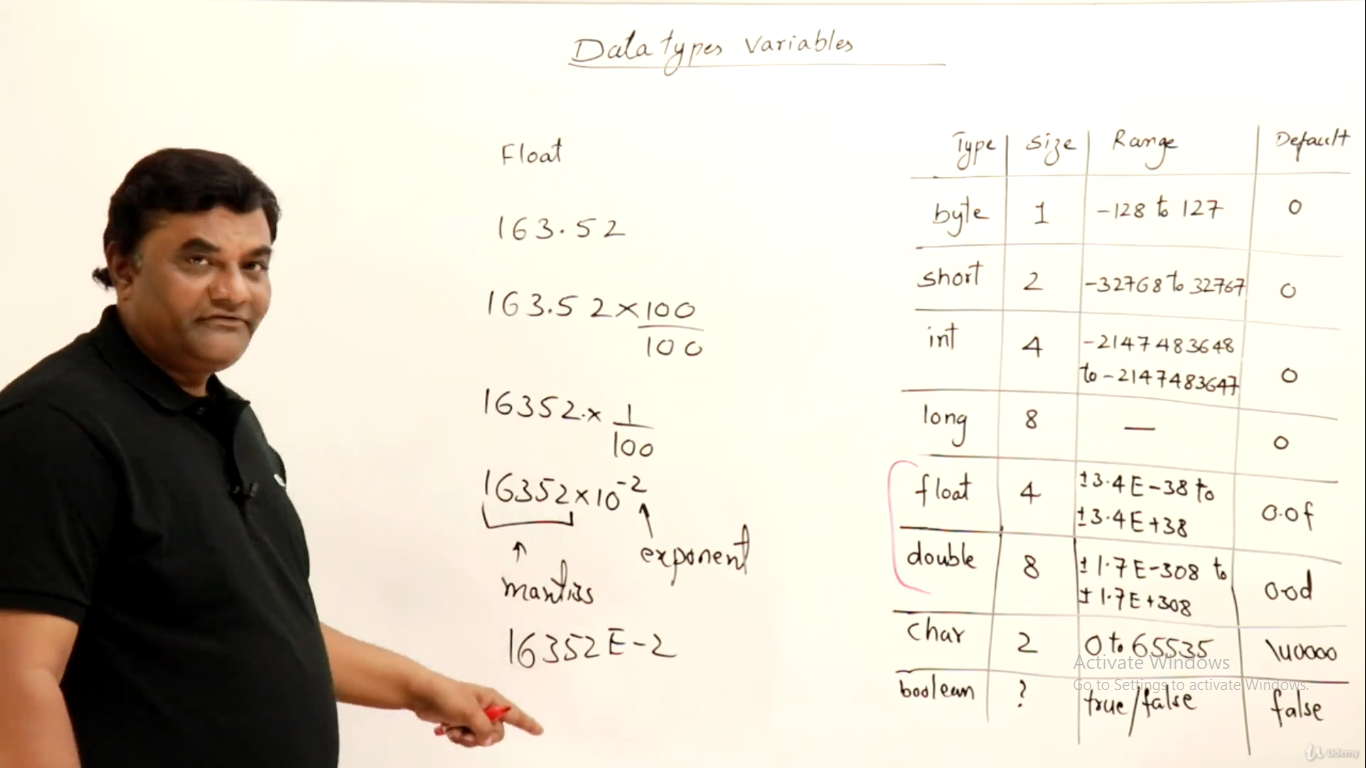 Data types Variables
Float
163.52
163.52 × 100
100
16352 × 1
100
16352 × 10⁻²
exponent
mantiss
16352E-2
Type Size Range Default
byte 1 -128 to 127 0
short 2 -32768 to 32767 0
int 4 -2147483648
to -2147483647 0
long 8 — 0
float 4 ±3.4E-38 to
±3.4E+38 0.0f
double 8 ±1.7E-308 to
±1.7E+308 0.0d
char 2 0 to 65535 \u0000
boolean ? true/false false
Activate Windows
Go to Settings to activate Windows.
Udemy